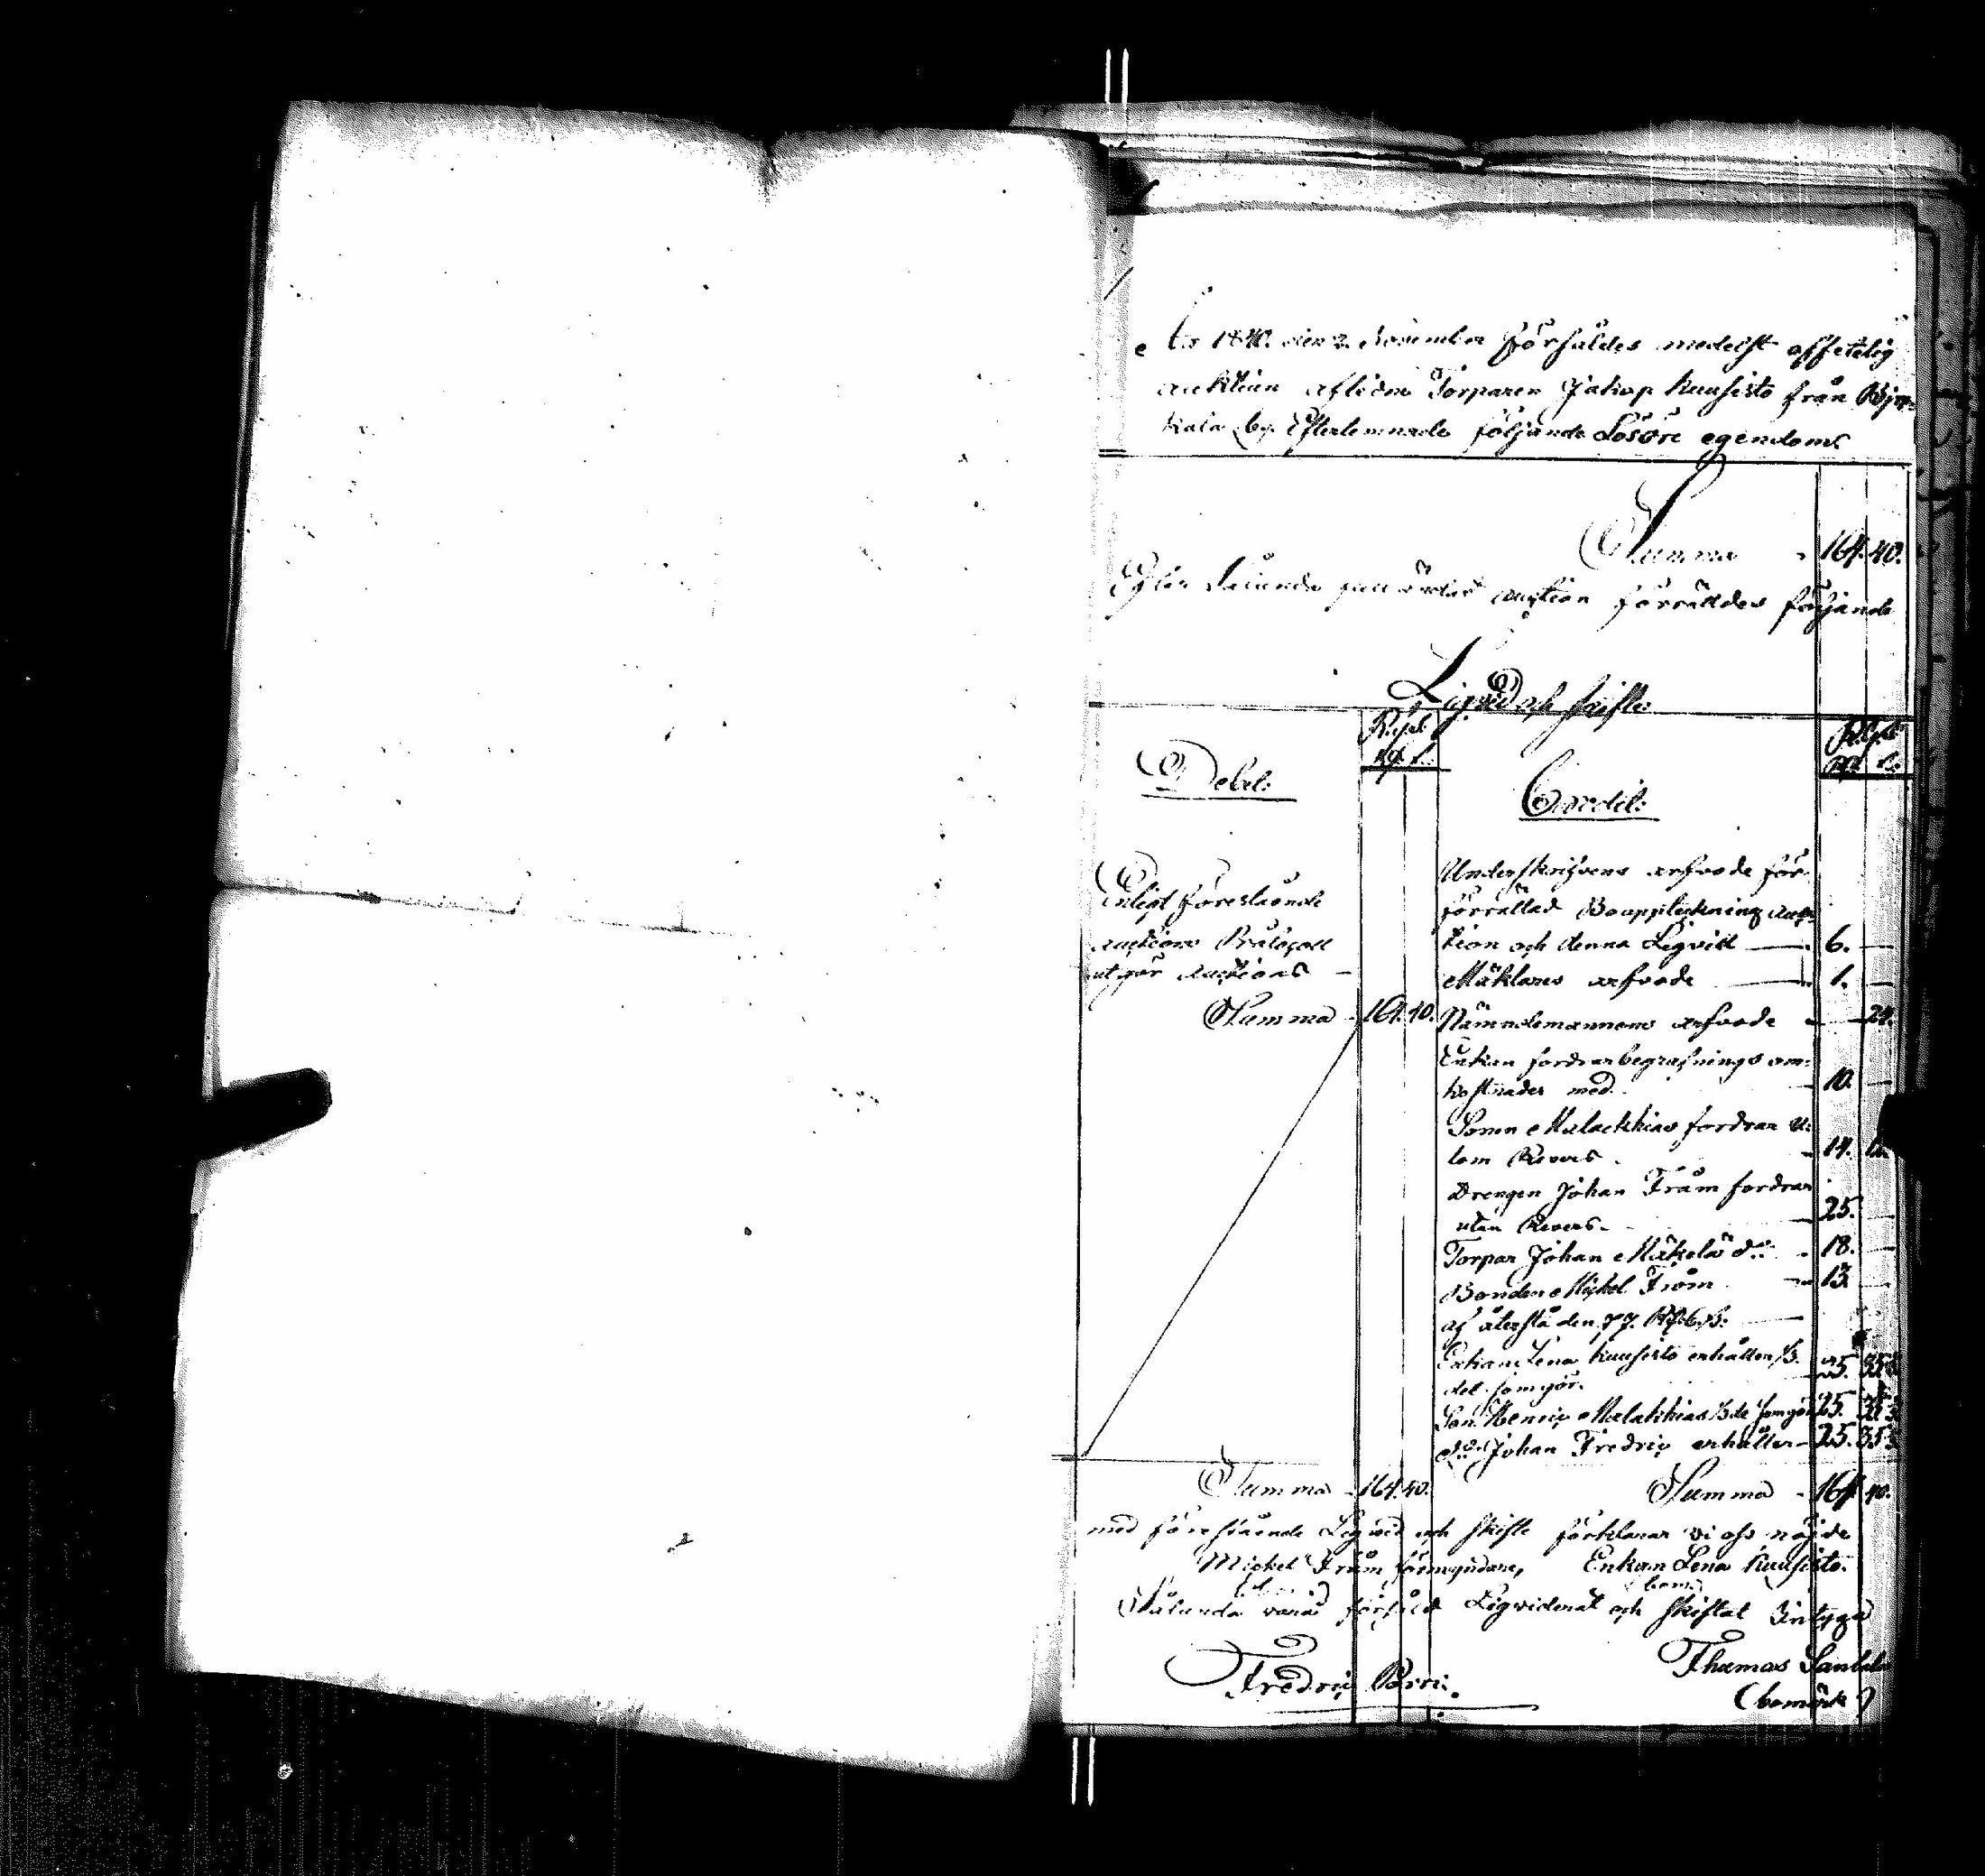 År 1840. den 2. November Försåldes medelst offetelig
auktion aflidne Torparen Jakop Kuusisto från
by Efterlemnade följande Lösöre egendom
Summa 164.40.
Efter Sålunda auktion förrättdes följande
Ligvid och skifte:
Debet:
Credit:
Enligt föreståonde
auctions Prålocoll
utgör auctions
Summa 164.40.
Underskrifvens arfvode för
förrättad Bouppteckning auk-
tion och denna Liqvid 6.
Mäklares arfvode 1.
Nämndemannens arfvode 24.
Enkan fordrar begrafnings om-
kostnader med 10.
Sonen Malackhias fordran
Revers 14.
Drengen Johan Fråm fordrar
utan Revers. 25.
Torpar Johan Mäkelä do 18.
Bonden Mickel Fråm 13
af återstå den 77.
Enkan Lena Kuusisto erhåller 1/3.
del som gör. 25.
Son Henric Malakhias 1/3 de som gör 25.
do Johan Fredric erhåller 25.
Summa 164.40.
Summa 164 40.
med föreståénde Ligvid och skifte förklarar vi oss nöjde
Mickel Fråm förmyndare, Enkan Lena Kuusisto.
Sålunda vara försåld Ligviderat och skiftat Intyga
Fredric Porri.
Thomas
(bomärke)